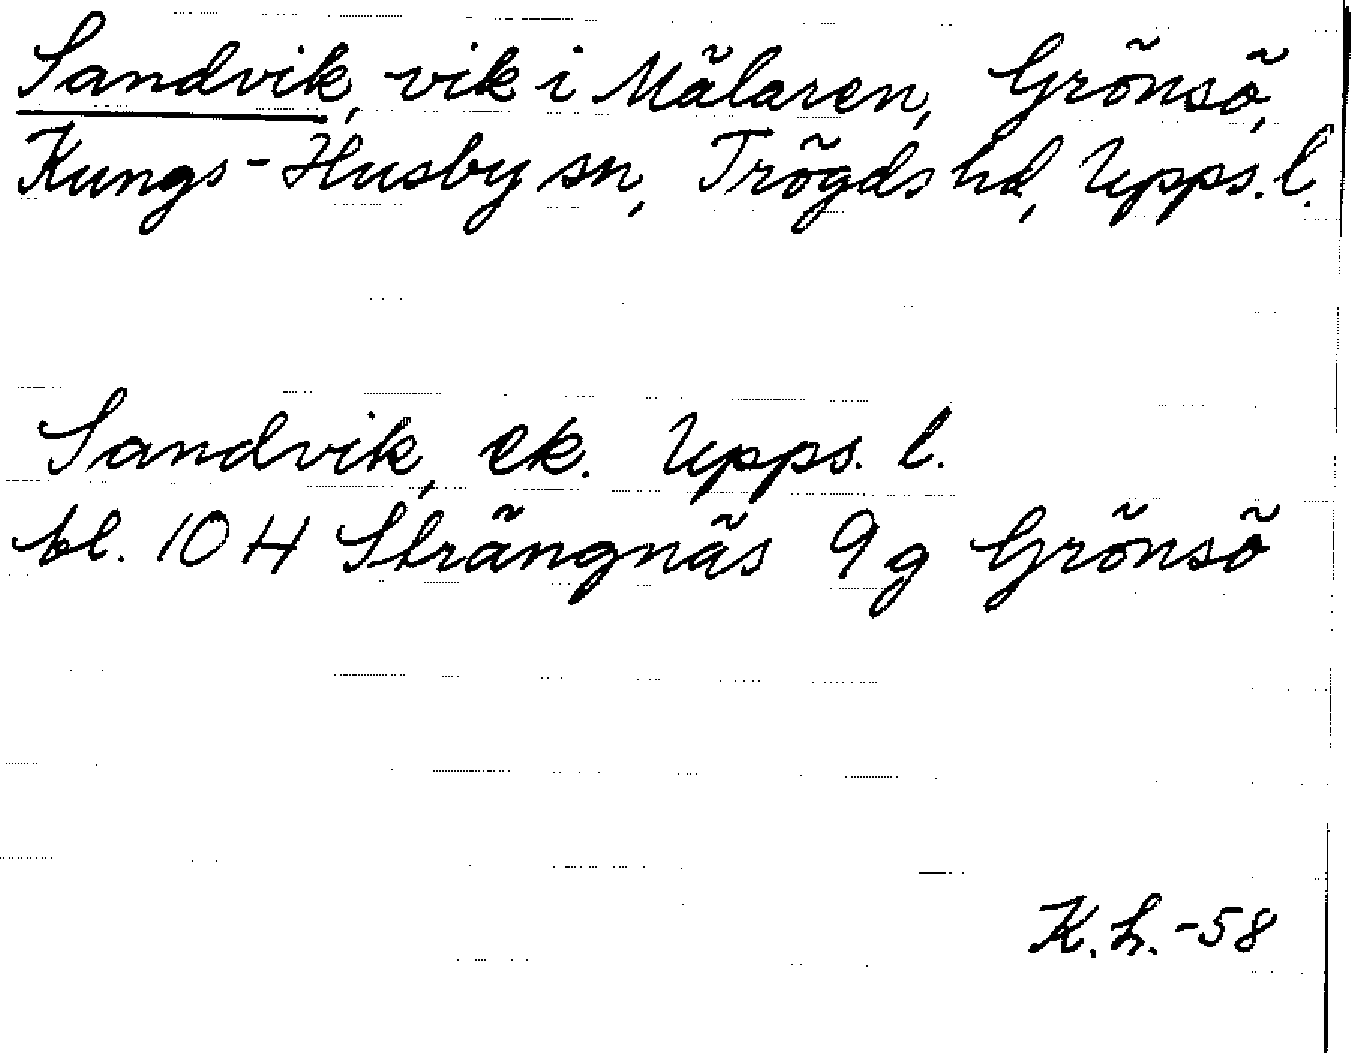 Sandvik, vik i Mälaren, Grönsö,
Kungs-Husby sn, Trögds hd, Upps. l.
Sandvik, ek. Upps. l.
bl. 10 H Strängnäs 9 g Grönsö
K.h. -58